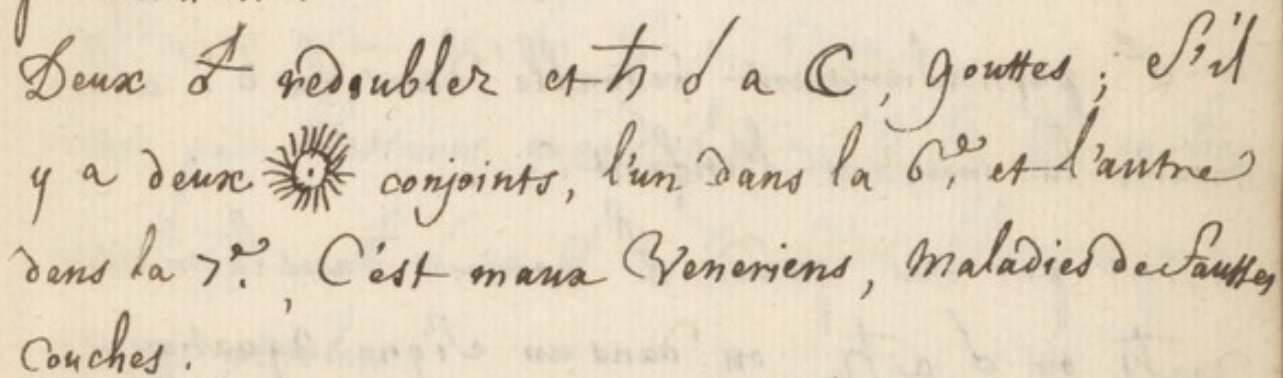 Deux ♂ redoubler et ♄ ☌ a ☾, gouttes ; S'il
y a deux ☉ conjoints, l'un dans la 6.e et l'autre
dans la 7.e, C'est maux Veneriens, Maladies de fauttes
Couches.